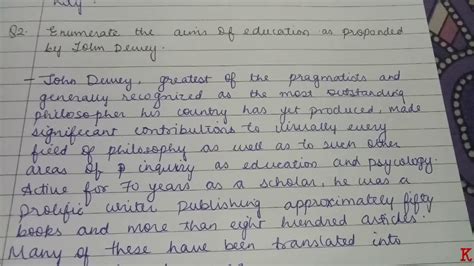 Q2. Enumerate the aims of education as proponded
by John Dewey.
- John Dewey, greatest of the pragmatists and
generally recognized as the most outstanding
philosopher his country has yet produced, made
significant contributions to virually every
field of philosophy as well as to such other
areas of inquiry as education and psycology.
Active for 70 years as a scholar, he was a
prolific writer publishing approximately fifty
books and more than eight hundred articles.
Many of these have been translated into
K